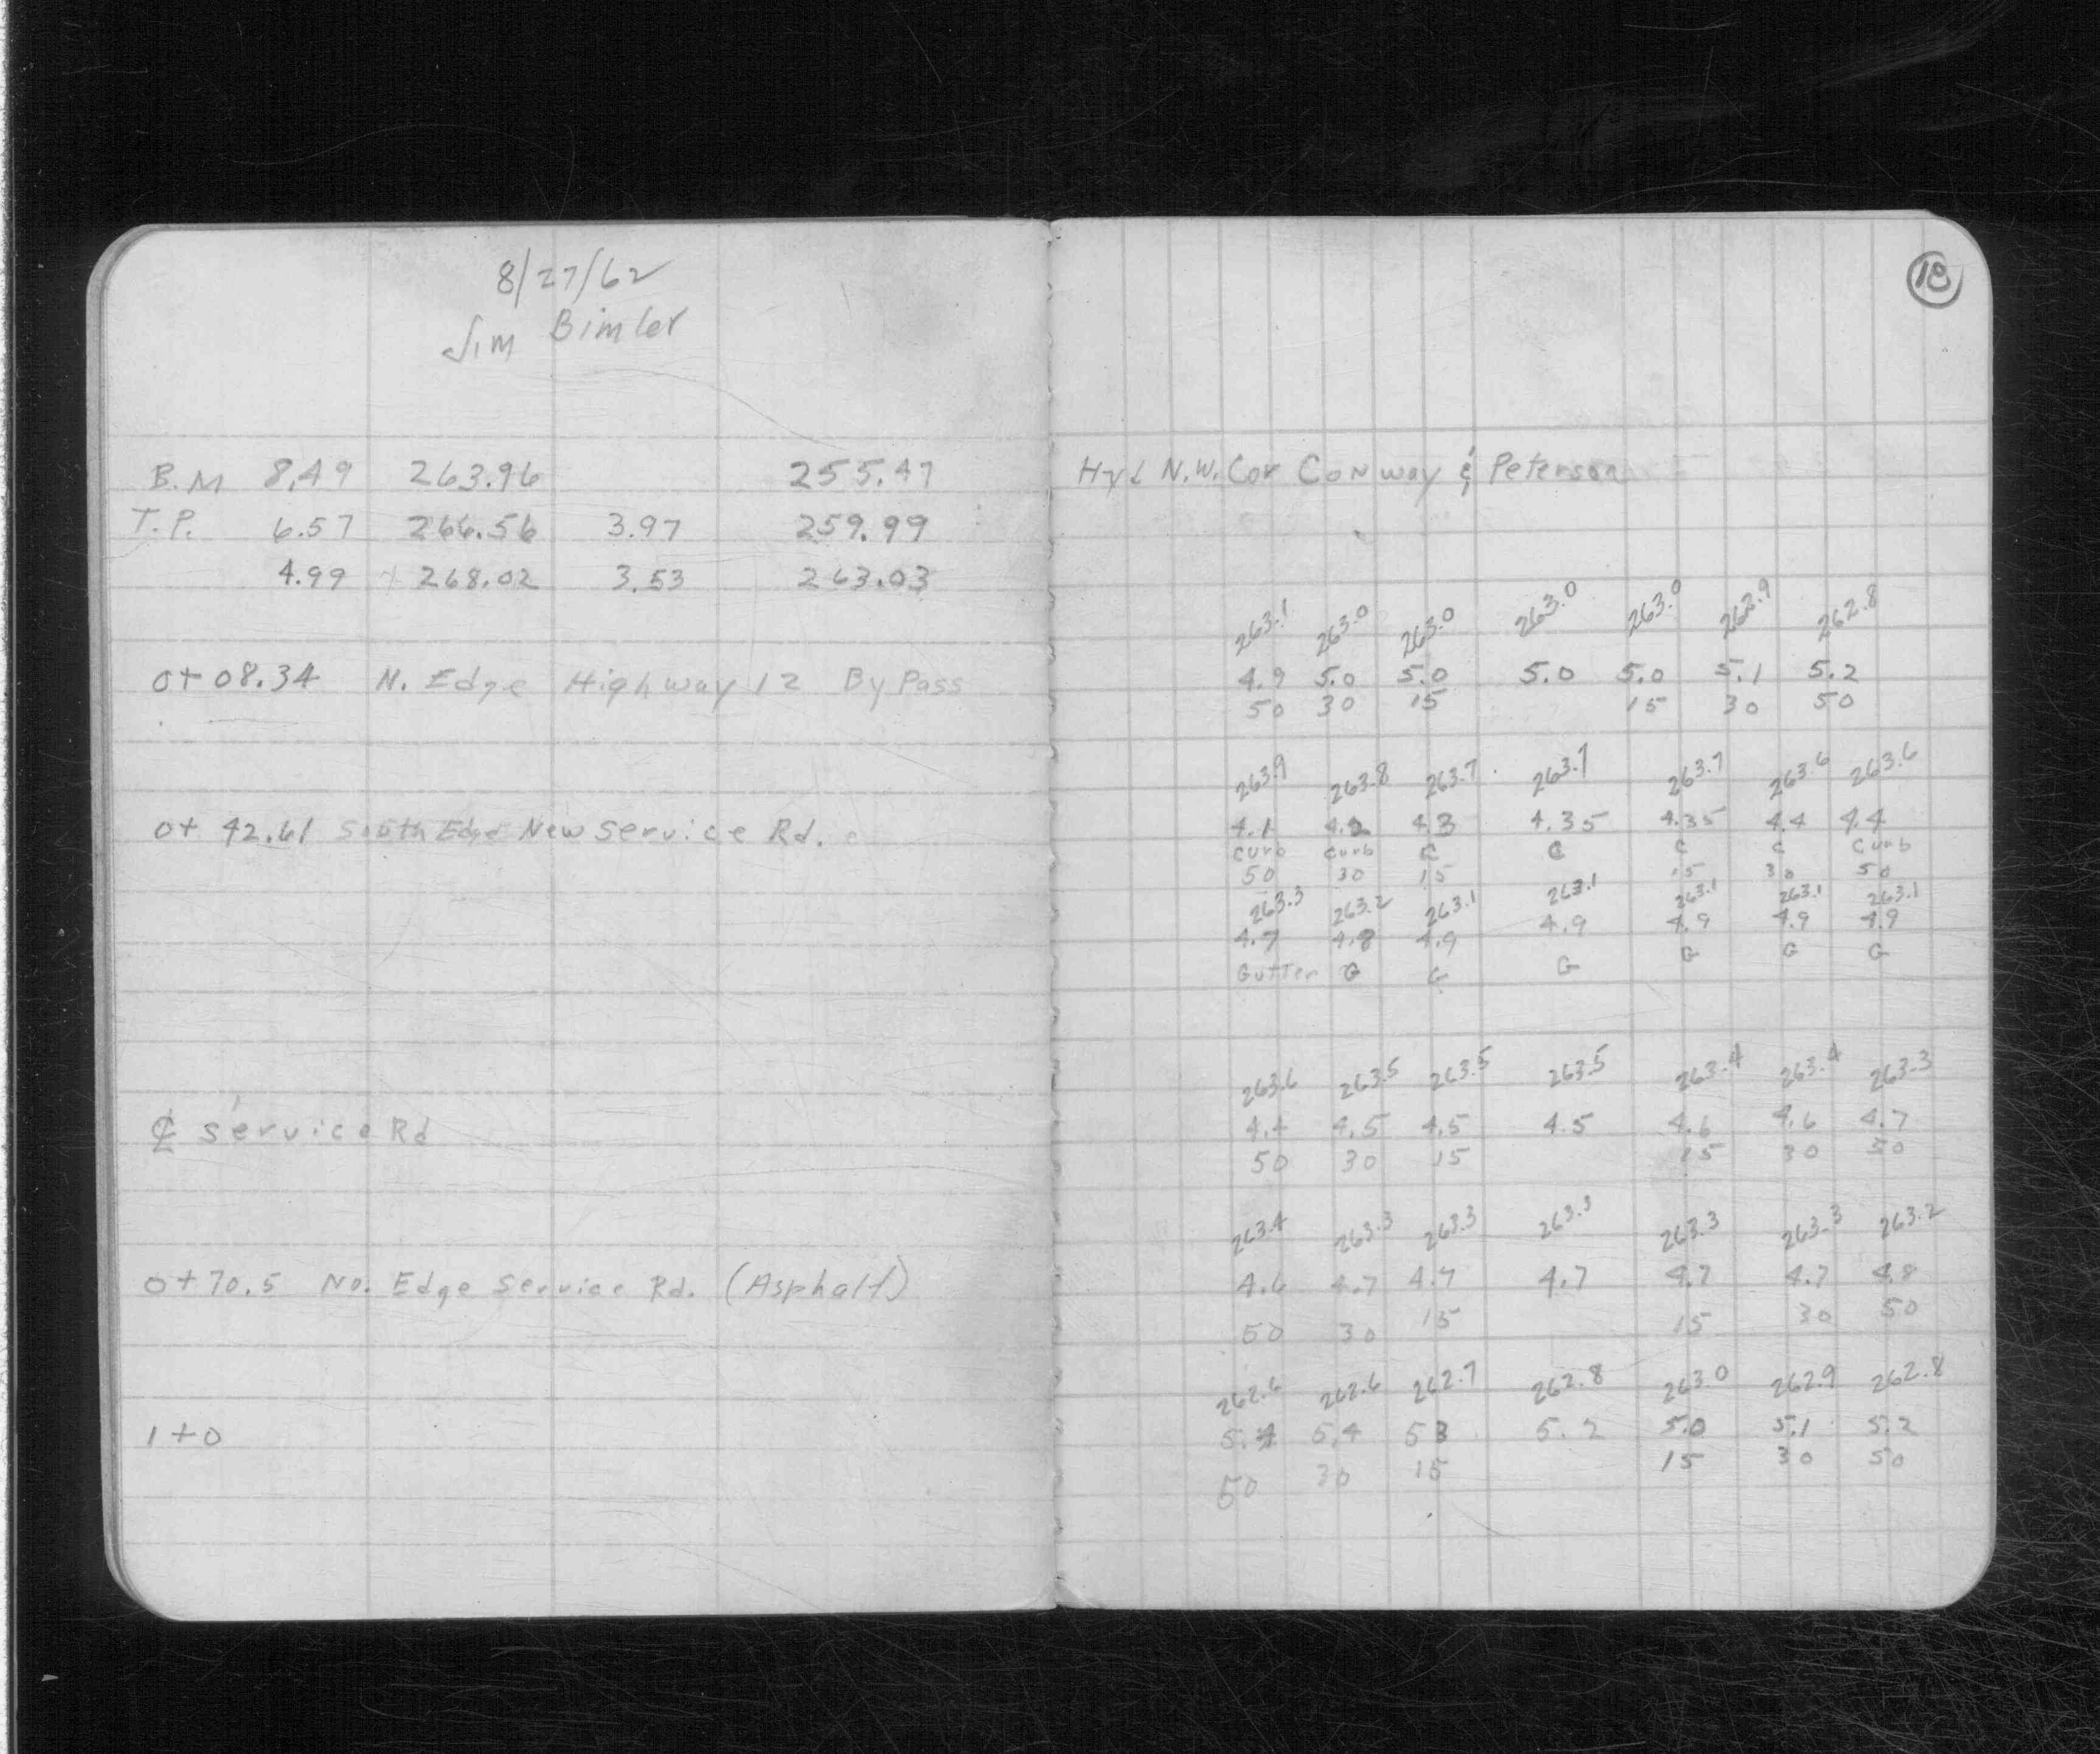 8/27/62
Jim Bimler
B.M 8.49 263.96 255.47
T.P. 6.57 266.56 3.97 259.99
4.99 268.02 3.53 263.03
0+08.34 N. Edge Highway 12 By Pass
0+42.61 South Edge New Service Rd.
℄ Service Rd
0+70.5 No. Edge Service Rd. (Asphalt)
1+0
18
Hyd N.W. Cor Conway & Peterson
263.1 263.0 263.0 263.0 263.0 262.9 262.8
4.9 5.0 5.0 5.0 5.0 5.1 5.2
50 30 15 15 30 50
263.9 263.8 263.7 263.7 263.7 263.6 263.6
4.1 4.2 4.3 4.35 4.35 4.4 4.4
curb curb C C C C curb
50 30 15 15 30 50
263.3 263.2 263.1 263.1 263.1 263.1 263.1
4.7 4.8 4.9 4.9 4.9 4.9 4.9
Gutter G G G G G G
263.6 263.5 263.5 263.5 263.4 263.4 263.3
4.4 4.5 4.5 4.5 4.6 4.6 4.7
50 30 15 15 30 50
263.4 263.3 263.3 263.3 263.3 263.3 263.2
4.6 4.7 4.7 4.7 4.7 4.7 4.8
50 30 15 15 30 50
262.6 262.6 262.7 262.8 263.0 262.9 262.8
5.4 5.4 53 5.2 5.0 5.1 5.2
50 30 15 15 30 50